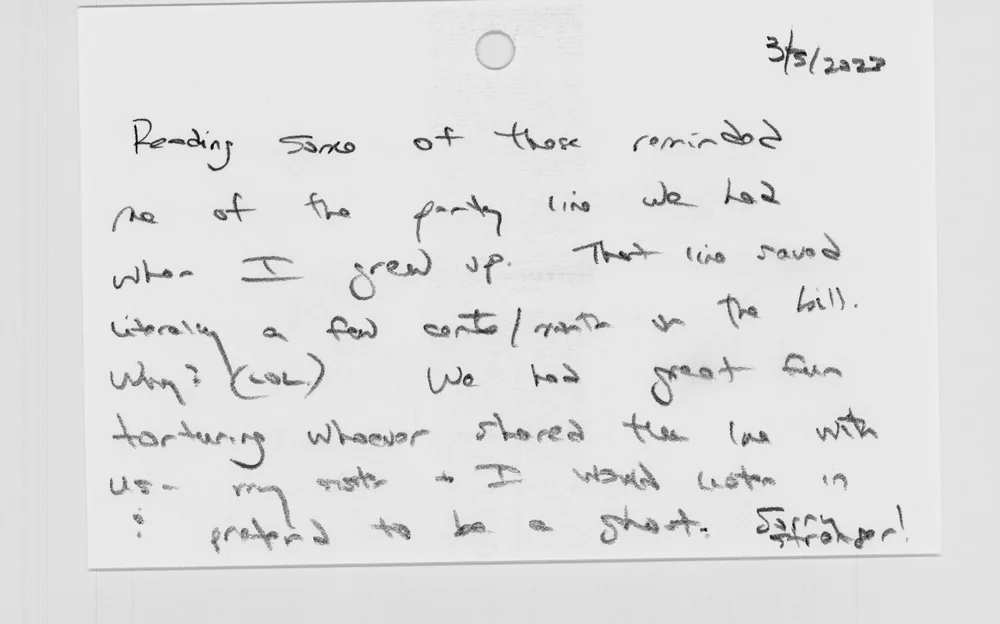 3/5/2022
Reading some of these reminded
me of the party line we had
when I grew up. That line saved
literally a few cents/month on the bill.
Why? (LOL) We had great fun
torturing whoever shared the line with
us - my sister + I would listen in
& pretend to be a ghost. Sorry
stranger!